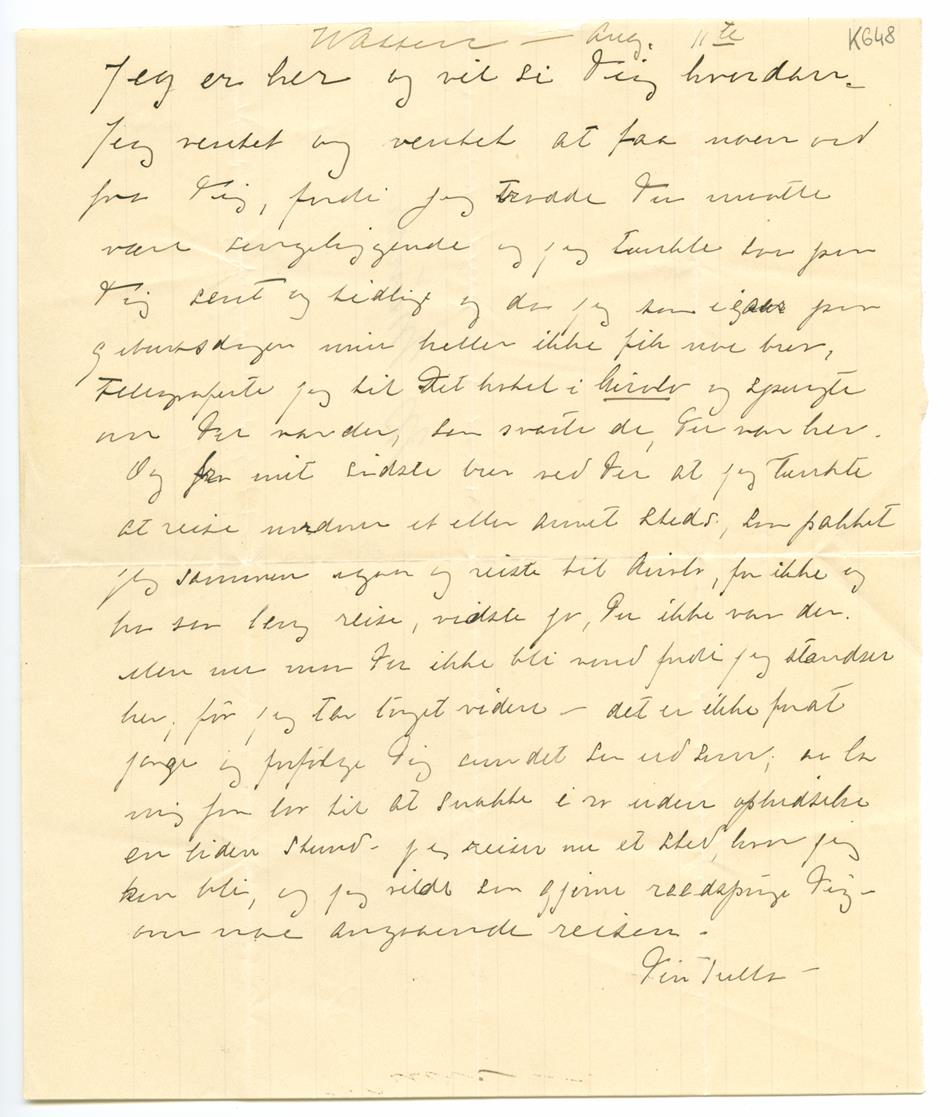 Wassen – Aug. 11te
K648
Jeg er her og vil si Dig hvordan.
Jeg ventet og ventet at faa noen ord
fra Dig, fordi jeg trodde Du maatte
være sengeliggende og jeg tænkte saa paa
Dig sent og tidlig og da jeg saa igaar paa
geburtsdagen min heller ikke fik noe brev,
telegraferte jeg til Det hotel i Airolo og spurgte
om Du var der, saa svarte de, Du var her.
Og fra mit sidste brev ved Du at jeg tænkte
at reise nordover et eller annet steds, saa pakket
jeg sammen igaar og reiste til Airolo, for ikke og
ha saa lang reise, vidste jo, Du ikke var der.
Men nu maa Du ikke bli vond fordi jeg standser
her, før jeg tar toget videre – det er ikke forat
jage og forfølge Dig om det ser ud som; aa la
mig faa lov til at snakke i ro uden ophidselse
en liden stund – jeg reiser nu et sted, hvor jeg
kan bli, og jeg vilde saa gjerne raadspørge Dig –
om noe angaaende reisen.
Din Tulla –